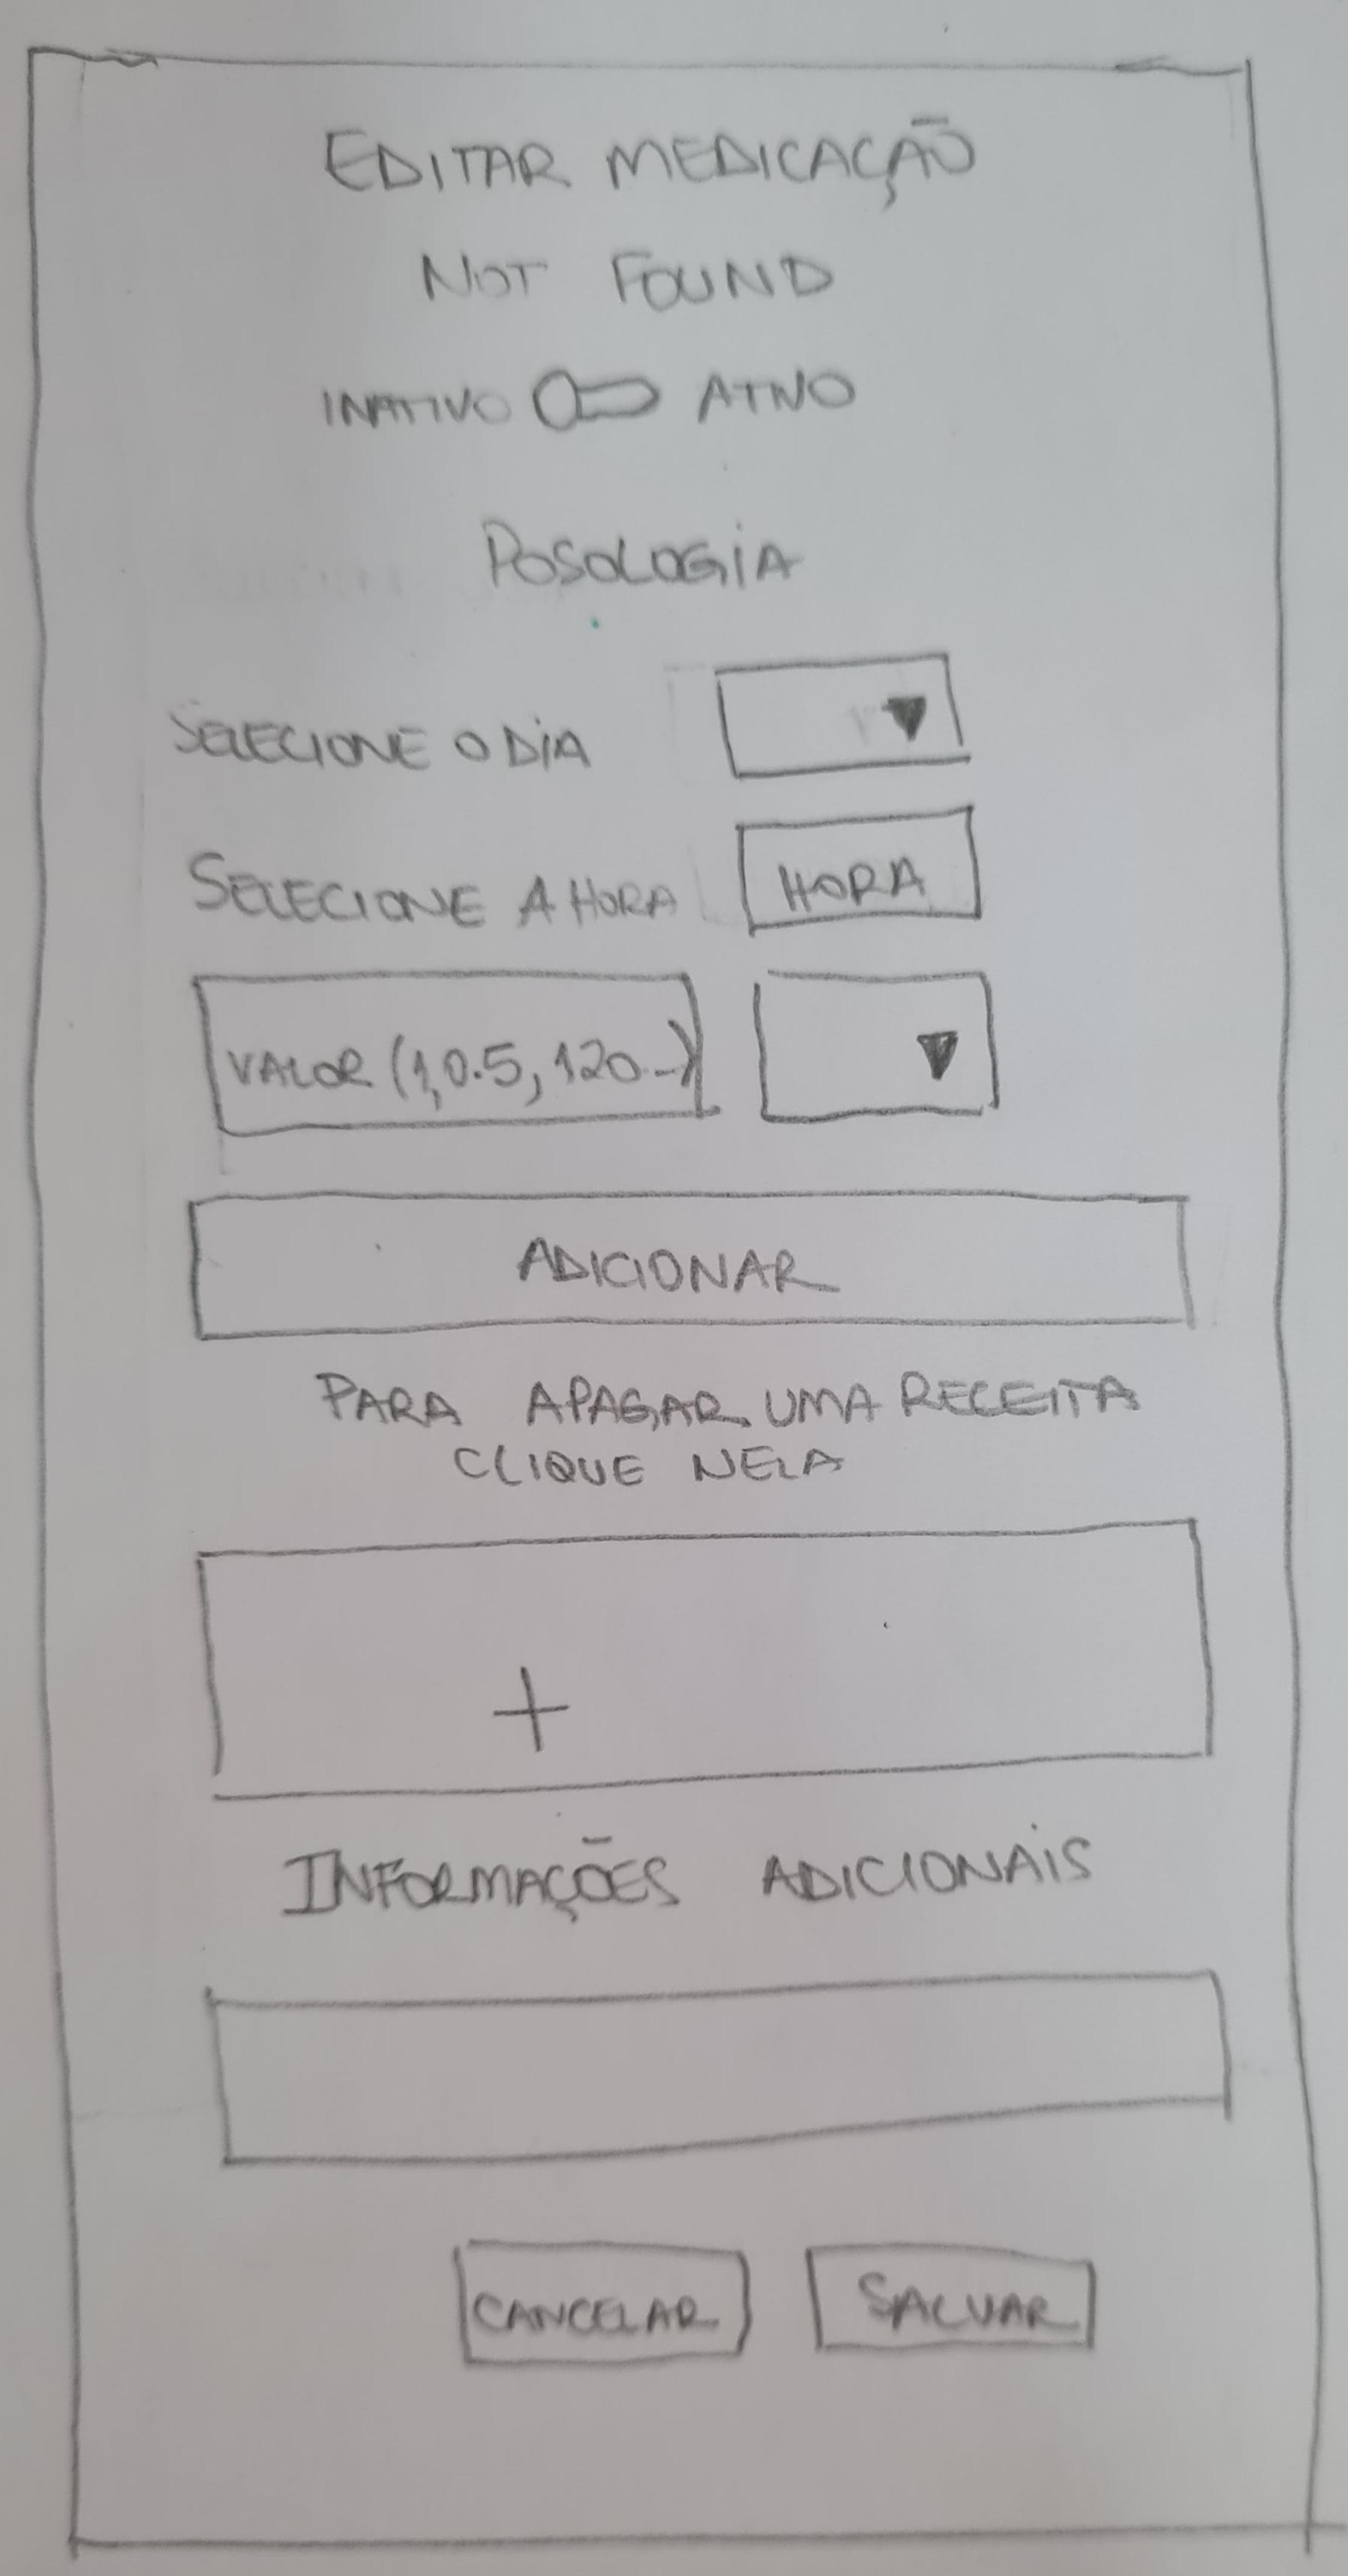 EDITAR MEDICAÇÃO
NOT FOUND
INATIVO ATIVO
POSOLOGIA
SELECIONE O DIA
SELECIONE A HORA HORA
VALOR (1,0.5,120..)
ADICIONAR
PARA APAGAR UMA RECEITA
CLIQUE NELA
+
INFORMAÇÕES ADICIONAIS
CANCELAR SALVAR